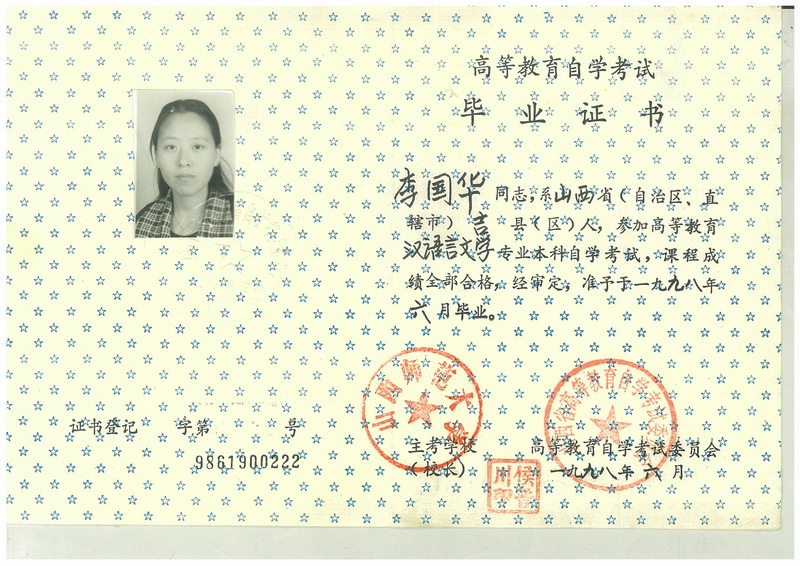 高等教育自学考试
毕业证书
李国华同志,系山西省(自治区、直
辖市) 吉 县(区)人,参加高等教育
汉语言文学专业本科自学考试,课程成
绩全部合格,经审定,准予于一九九八年
六月毕业。
山西师范大学
证书登记 字第 号
9861900222
主考学校
(校长)
高等教育自学考试委员会
一九九八年六月